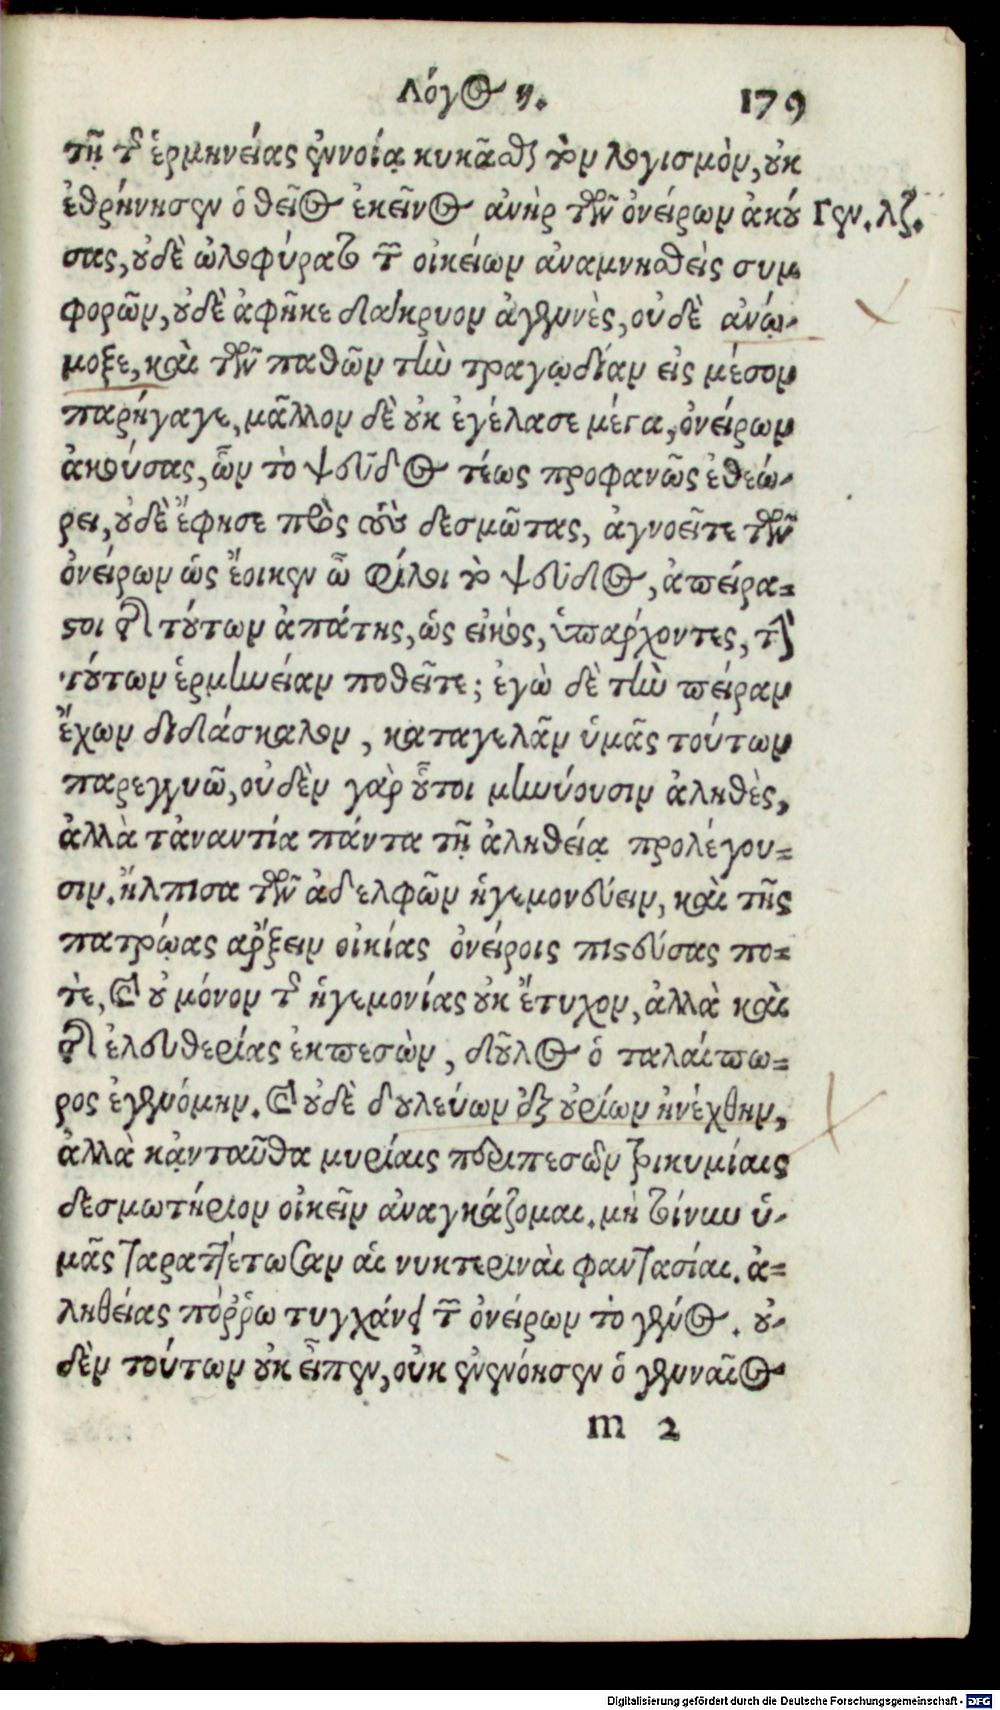 Λόγος η. 179
τῇ τῆς ἑρμηνείας ἐννοίᾳ κυκᾶσθαι τὸν λογισμὸν, οὐκ
ἐθρήνησεν ὁ θεῖος ἐκεῖνος ἀνὴρ τῶν ὀνείρων ἀκού Γεν. λζ.
σας, οὐδὲ ὠλοφύρατο τῶν οἰκείων ἀναμνησθεὶς συμ
φορῶν, οὐδὲ ἀφῆκε δάκρυον ἀγεννὲς, οὐδὲ ἀνῴ-
μοξε, καὶ τῶν παθῶν τὴν τραγῳδίαν εἰς μέσον
παρήγαγε, μᾶλλον δὲ οὐκ ἐγέλασε μέγα, ὀνείρων
ἀκούσας, ὧν τὸ ψεῦδος τέως προφανῶς ἐθεώ-
ρει, οὐδὲ ἔφησε πρὸς τοὺς δεσμῶτας, ἀγνοεῖτε τῶν
ὀνείρων ὡς ἔοικεν ὦ φίλοι τὸ ψεῦδος, ἀπείρα=
στοι τῆς τούτων ἀπάτης, ὡς εἰκός, ὑπάρχοντες, τὴν
τούτων ἑρμηνείαν ποθεῖτε; ἐγὼ δὲ τὴν πεῖραν
ἔχων διδάσκαλον, καταγελᾶν ὑμᾶς τούτων
παρεγγυῶ, οὐδὲν γὰρ οὗτοι μηνύουσιν ἀληθὲς,
ἀλλὰ τἀναντία πάντα τῇ ἀληθείᾳ προλέγου=
σιν. ἤλπισα τῶν ἀδελφῶν ἡγεμονεύειν, καὶ τῆς
πατρῴας ἄρξειν οἰκίας ὀνείροις πιστεύσας πο=
τὲ, καὶ οὐ μόνον τῆς ἡγεμονίας οὐκ ἔτυχον, ἀλλὰ καὶ
τῆς ἐλευθερίας ἐκπεσὼν, δοῦλος ὁ ταλαίπω=
ρος ἐγενόμην. καὶ οὐδὲ δουλεύων ἐξ οὐρίων ἠνέχθην,
ἀλλὰ κᾀνταῦθα μυρίαις περιπεσὼν τρικυμίαις
δεσμωτήριον οἰκεῖν ἀναγκάζομαι. μὴ τοίνυν ὑ-
μᾶς ταραττέτωσαν αἱ νυκτεριναὶ φαντασίαι. ἀ=
ληθείας πόῤῥω τυγχάνει τῶν ὀνείρων τὸ γένος. οὐ-
δὲν τούτων οὐκ εἶπεν, οὐκ ἐνενόησεν ὁ γενναῖος
m 2
Digitalisierung gefördert durch die Deutsche Forschungsgemeinschaft - DFG